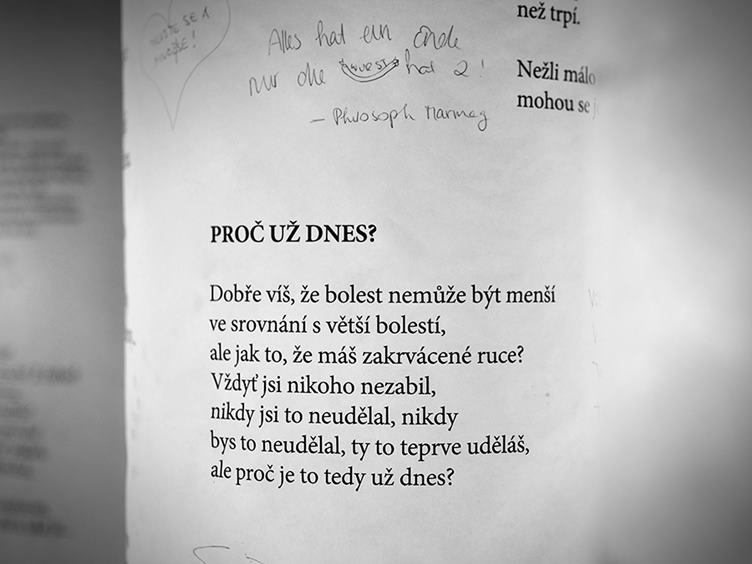 MŮJTE SE I
MNOŽTE!
Alles hat ein Ende
nur die Wurst hat 2!
– Philosoph Marmeg
než trpí.
Nežli málo
mohou se
PROČ UŽ DNES?
Dobře víš, že bolest nemůže být menší
ve srovnání s větší bolestí,
ale jak to, že máš zakrvácené ruce?
Vždyť jsi nikoho nezabil,
nikdy jsi to neudělal, nikdy
bys to neudělal, ty to teprve uděláš,
ale proč je to tedy už dnes?